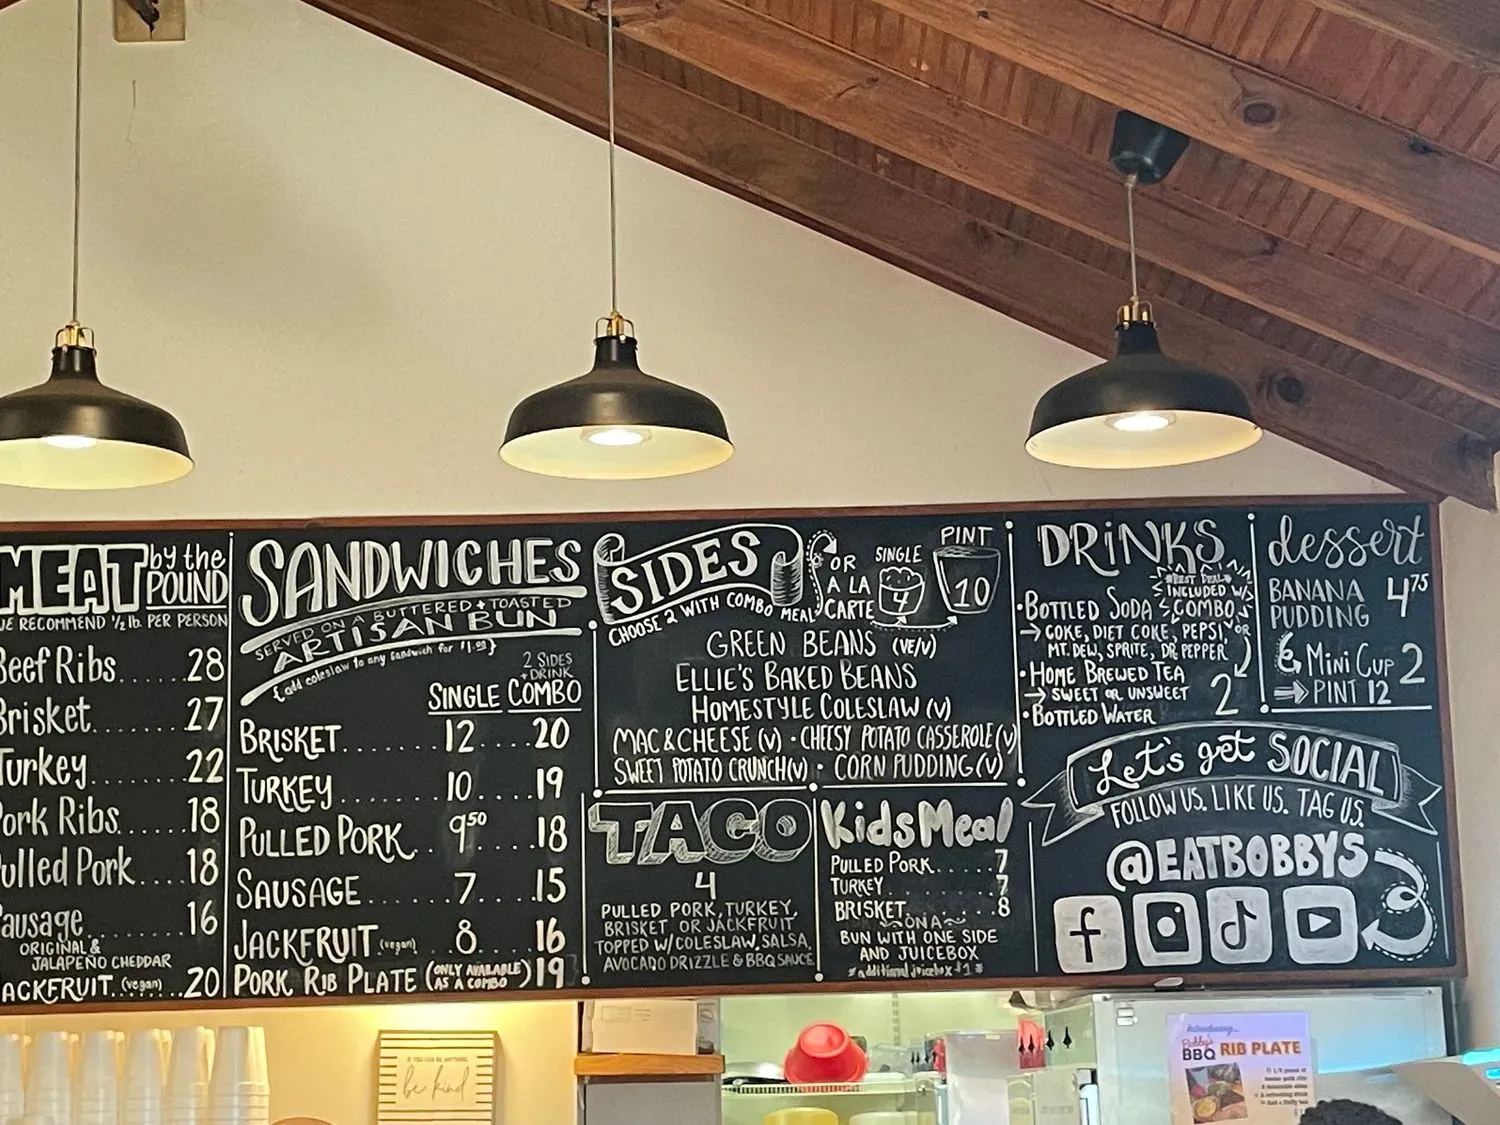 MEAT by the POUND
WE RECOMMEND 1/2 lb. PER PERSON
Beef Ribs......28
Brisket.......27
Turkey........22
Pork Ribs......18
Pulled Pork....18
Sausage.......16
ORIGINAL &
JALAPEÑO CHEDDAR
JACKFRUIT (vegan)....20
SANDWICHES
SERVED ON A BUTTERED & TOASTED
ARTISAN BUN
{add coleslaw to any sandwich for }
2 SIDES
+ DRINK
SINGLE COMBO
BRISKET.......12....20
TURKEY........10....19
PULLED PORK..9⁵⁰....18
SAUSAGE........7....15
JACKFRUIT (vegan)..8....16
PORK RIB PLATE (ONLY AVAILABLE AS A COMBO) 19
SIDES
CHOOSE 2 WITH COMBO MEAL
OR
A LA
CARTE
SINGLE
4
PINT
10
GREEN BEANS (VE/V)
ELLIE'S BAKED BEANS
HOMESTYLE COLESLAW (V)
MAC & CHEESE (V) · CHEESY POTATO CASSEROLE (V)
SWEET POTATO CRUNCH (V) · CORN PUDDING (V)
TACO
4
PULLED PORK, TURKEY,
BRISKET OR JACKFRUIT
TOPPED W/ COLESLAW, SALSA,
AVOCADO DRIZZLE & BBQ SAUCE
Kids Meal
PULLED PORK......7
TURKEY...........7
BRISKET..........8
ON A
BUN WITH ONE SIDE
AND JUICEBOX
* additional juicebox $1 *
DRINKS
BEST DEAL
INCLUDED W/
COMBO
• BOTTLED SODA
→ COKE, DIET COKE, PEPSI,
MT. DEW, SPRITE, DR PEPPER
OR
• HOME BREWED TEA
→ SWEET OR UNSWEET
2
• BOTTLED WATER
dessert
BANANA
PUDDING
4⁷⁵
Mini Cup 2
PINT 12
Let's get SOCIAL
FOLLOW US. LIKE US. TAG US.
@EATBOBBYS
IF YOU CAN BE ANYTHING,
be kind
Introducing...
Bobby's
BBQ RIB PLATE